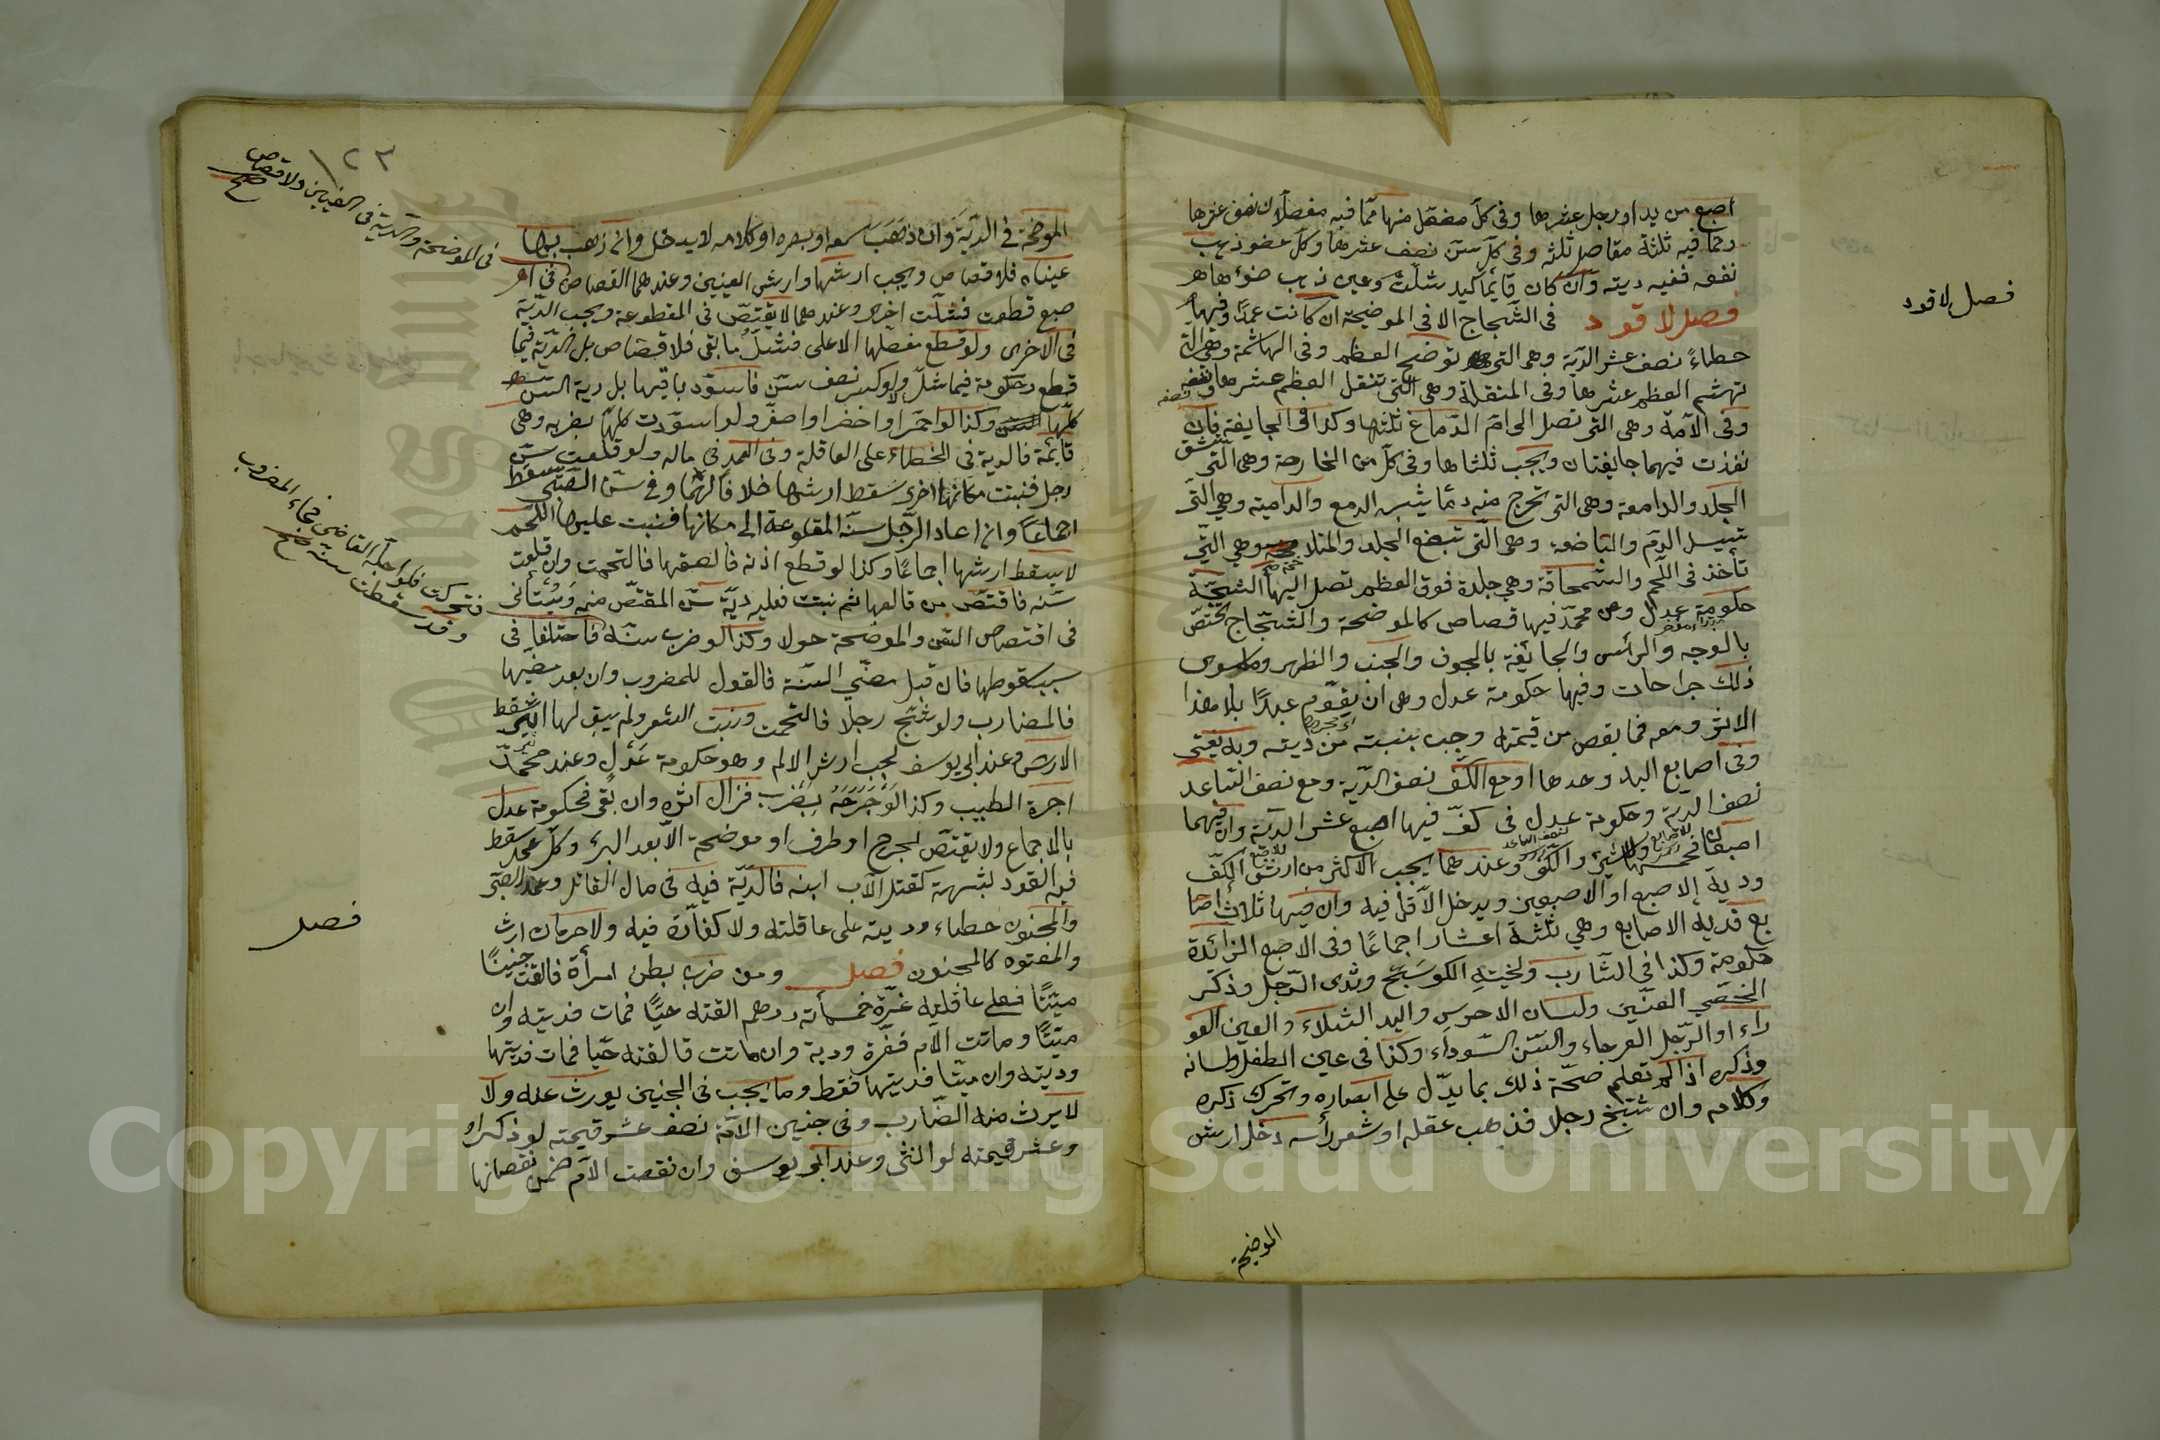 اصبع من يد او رجل عشرها وفى كل مفصل منها مما فيه مفصلان نصف عشرها
ومما فيه ثلثة مفاصل ثلثه وفى كل سن نصف عشرها وكل عضو ذهب
نفعه ففيه ديته وان كان قايما كيد شلت وعين ذهب ضوءها
فصل لا قود فى الشجاج الا فى الموضحة ان كانت عمدا وفيها
خطاء نصف عشر الدية وهى التى توضح العظم وفى الهاشمة وهى التى
تهشم العظم عشرها وفى المنقلة وهى التى تنقل العظم عشرها ونصفه
وفى الآمة وهى التى تصل الى ام الدماغ ثلثها وكذا فى الجايفة فان
نفذت فهما جايفتان ويجب ثلثاها وفى كل من الخارصة وهى التى تشق
الجلد والدامعة وهى التى تخرج منه دما يشبه الدمع والدامية وهى التى
تسيل الدم والباضعة وهى التى تبضع الجلد والمتلاحمة وهى التى
تأخذ فى اللحم والسمحاقة وهى جلدة فوق العظم تصل اليها الشجة
حكومة عدل وعن محمد فيها قصاص كالموضحة والشجاج تختص
بالوجه والرأس والجائفة بالجوف والجنب والظهر وما سوى
ذلك جراحات وفيها حكومة عدل وهى ان يقوم عبدا بلا هذا
الاثر ومعه فما نقص من قيمته وجب بنسبته من ديته وبه يفتى
وفى اصابع اليد وحدها او مع الكف نصف الدية ومع نصف الساعد
نصف الدية وحكومة عدل فى كف فيها اصبع عشر الدية وان فيهما
اصبعان فخمسها ولا شىء فى الكف وعندهما يجب الاكثر من ارش الكف
ودية الاصبع او الاصبعين ويدخل الاقل فيه وان فيها ثلاث اصا
بع فدية الاصابع وهى ثلثة اعشار اجماعا وفى الاصبع الزائدة
حكومة وكذا فى الشارب ولحية الكوسج وثدى الرجل وذكر
الخصى العنين ولسان الاخرس واليد الشلاء والعين العو
راء او الرجل العرجاء والسن السوداء وكذا فى عين الطفل ولسانه
وذكره اذا لم تعلم صحة ذلك بما يدل على ابصاره وتحرك ذكره
وكلامه وان شج رجلا فذهب عقله او شعر رأسه دخل ارش
الموضحة
فصل لا قود
١٢٣
الموضحة فى الدية وان ذهب سمعه او بصره او كلامه لا يدخل وان ذهب بها
عيناه فلا قصاص ويجب ارشها وارش العينين وعندهما القصاص
صبع قطعت فشلت اخرى وعندهما لا يقتص فى المقطوعة ويجب الدية
فى الاخرى ولو قطع مفصلها الاعلى فشل ما بقى فلا قصاص بل الدية فيما
قطع وحكومة فيما شل ولو كسر نصف سن فاسود باقيها بل دية السن
كلها وكذا لو احمر او اخضر او اصفر ولو اسودت كلها بضربه وهى
قائمة فالدية فى الخطاء على العاقلة وفى العمد فى ماله ولو قلعت سن
رجل فنبتت مكانها اخرى سقط ارشها خلافا لهما وفى سن الصبى سقط
اجماعا وان اعاد الرجل سنه المقلوعة الى مكانها فنبت عليها اللحم
لا يسقط ارشها اجماعا وكذا لو قطع اذنه فالصقها فالتحمت وان قلعت
سنه فاقتص من قالعها ثم نبتت فعليه دية سن المقتص منه ويستأنى
فى اقتصاص السن والموضحة حولا وكذا لو ضرب سنه فاختلفا فى
سبب سقوطها فان قبل مضى السنة فالقول للمضروب وان بعد مضيها
فالمضارب ولو شج رجلا فالتحمت ونبت الشعر ولم يبق لها اثر سقط
الارش وعند ابى يوسف يجب ارش الالم وهو حكومة عدل وعند محمد
اجرة الطبيب وكذا لو جرحه بضرب فزال اثره وان بقى فحكومة عدل
بالاجماع ولا يقتص لجرح او طرف او موضحة الا بعد البرء وكل عمد سقط
فيه القود لشبهة كقتل الاب ابنه فالدية فيه فى مال القاتل وعمد الصبى
والمجنون خطاء وديته على عاقلته ولا كفارة فيه ولا حرمان ارث
والمعتوه كالمجنون فصل ومن ضرب بطن امرأة فالقت جنينا
ميتا فعلى عاقلته غرة خمسمأته درهم القته حيا فمات فديته وان
ميتا وماتت الام فغرة ودية وان ماتت فالقته حيا فمات فديتها
وديته وان ميتا فديتها فقط وما يجب فى الجنين يورث عنه ولا
لا يرث منه الضارب وفى جنين الامة نصف عشر قيمته لو ذكرا و
وعشر قيمته لو انثى وعند ابى يوسف وان نقصت الام ضمن نقصانها
فى الموضحة والدية فى العينين ولا قصاص
صح
فتحركت فلو اجله القاضى فجاء المضروب
وقد سقطت سنه
صح
فصل
Copyright © King Saud University